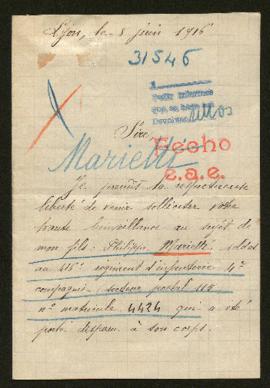 Lyon, le 8 juin 1916
31546
Sire
Hecho
Marietti
e.a.e.
Je prends la respectueuse
liberté de venir solliciter votre
haute bienveillance au sujet de
mon fils: Philippe Marietti, soldat
au 415e régiment d'infanterie 4e
compagnie, secteur postal 115
no matricule 4424 qui a été
porté disparu à son corps.